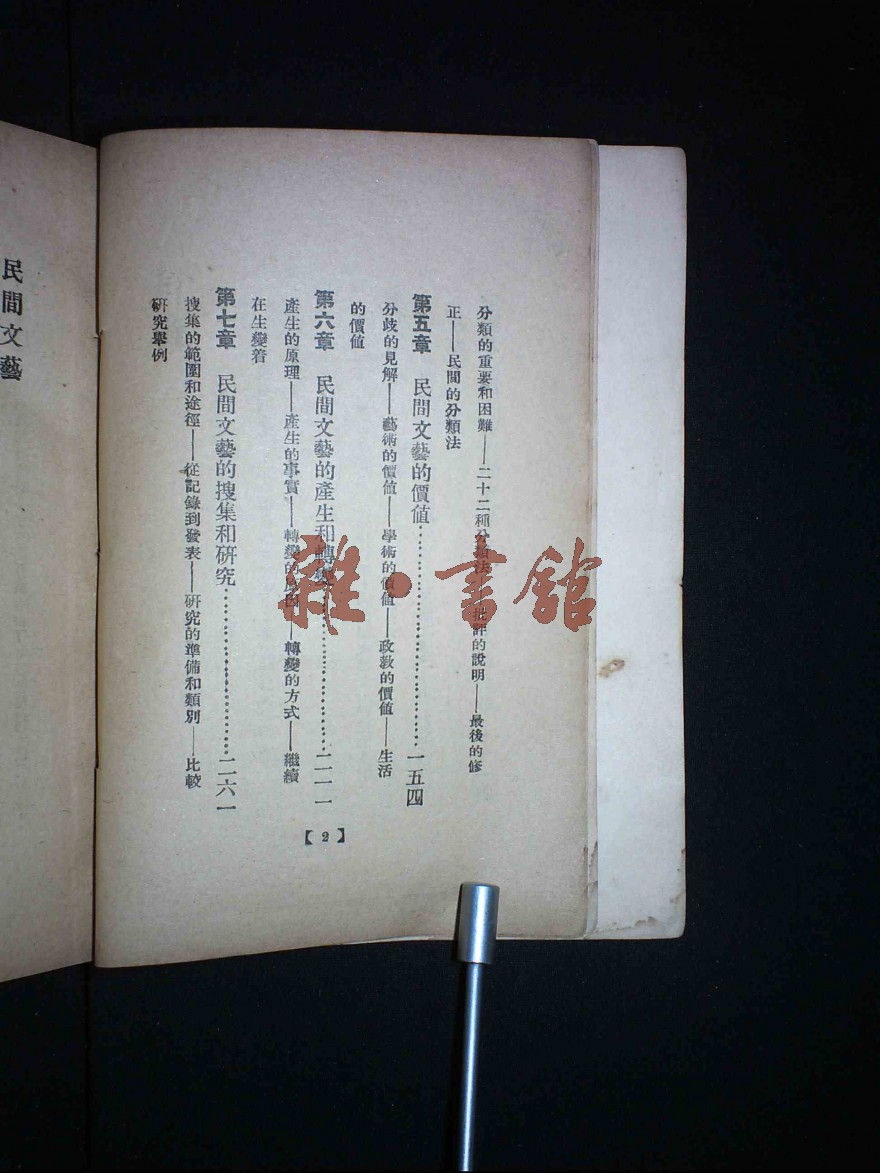 分類的重要和困難——二十二種分類法——批評的說明——最後的修
正——民間的分類法
第五章　民間文藝的價値…………………一五四
分歧的見解——藝術的價値——學術的價値——政教的價値——生活
的價値
第六章　民間文藝的產生和轉變…………………二一一
產生的原理——產生的事實——轉變的原因——轉變的方式——繼續
在生變着
第七章　民間文藝的搜集和研究…………………二六一
搜集的範圍和途徑——從記錄到發表——研究的準備和類別——比較
研究舉例
【2】
民間文藝
雜·書館